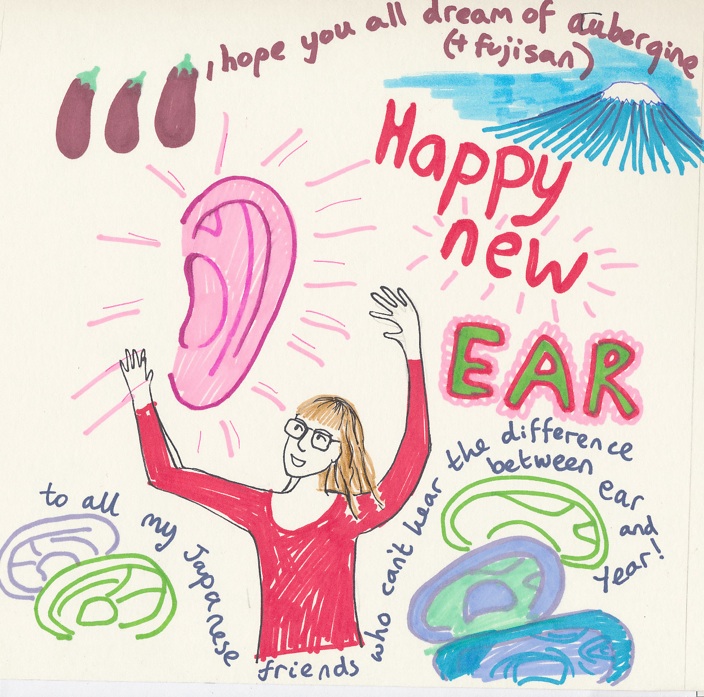 , hope you all dream of aubergine
(+ fujisan)
Happy
new
EAR
to all my Japanese friends who can't hear the difference
between ear
and
year!